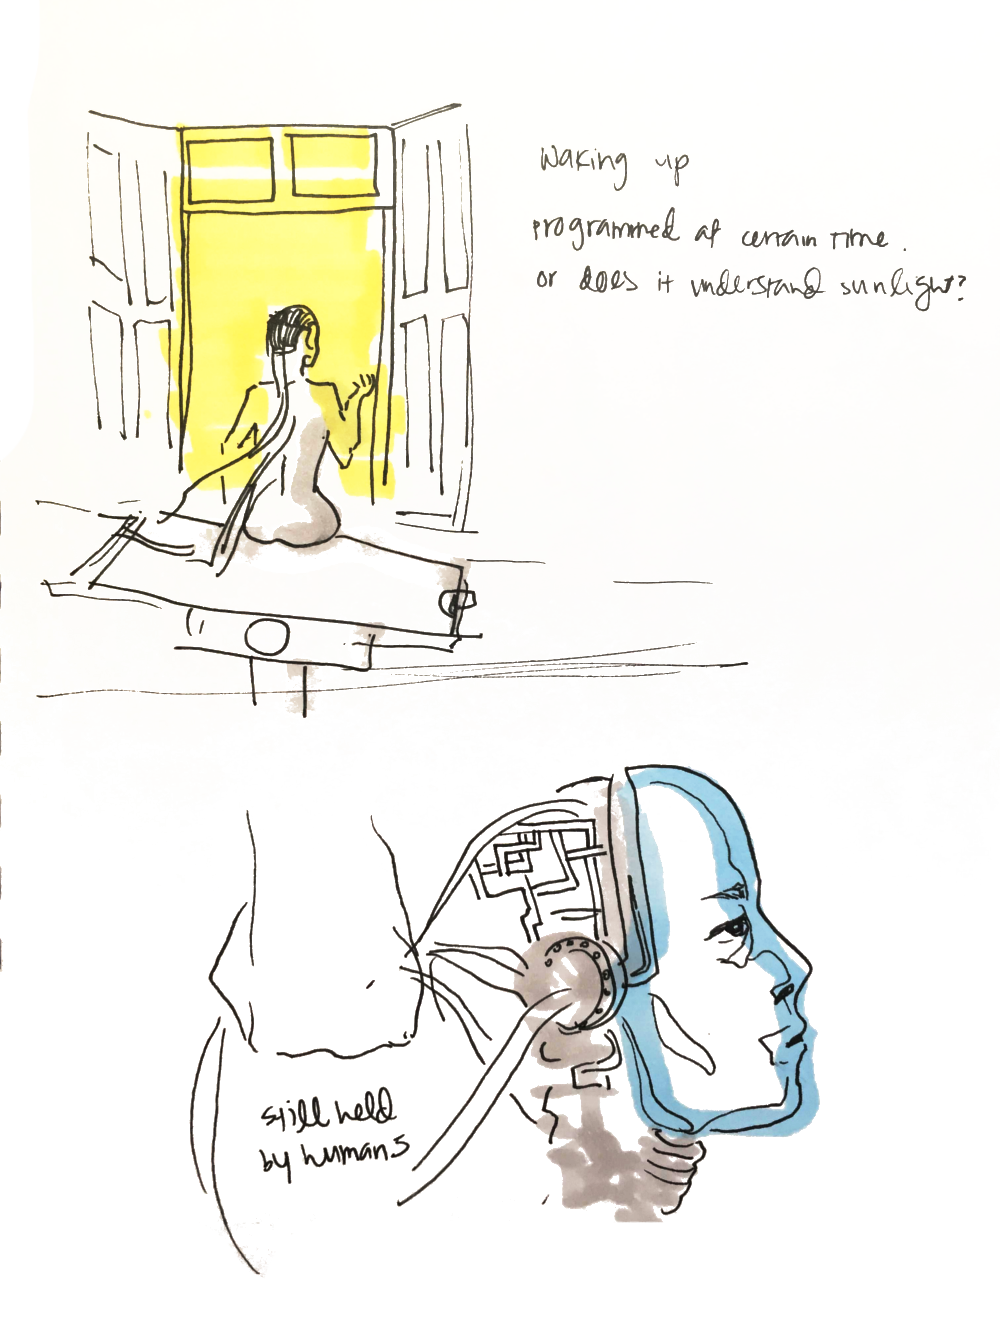 Waking up
programmed at certain time.
or does it understand sunlight?
still held
by humans